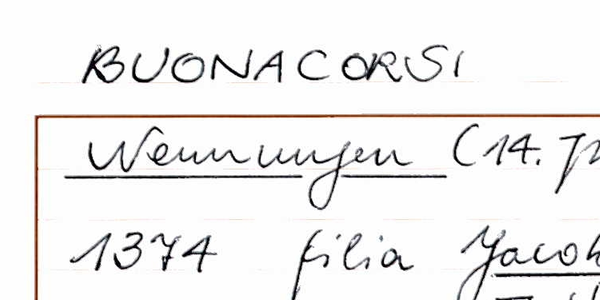 BUONACORSI
Nennungen (14. Jh
1374 filia Jacob